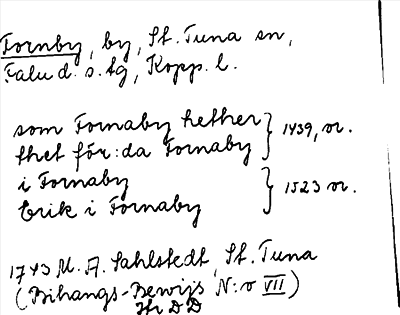 Fornby, by, St. Tuna sn,
Falu d. s. tg, Kopp. l.
som Fornaby hether } 1439, or.
thet för:da Fornaby
i Fornaby } 1523 or.
Erik i Fornaby
1743 M. A. Sahlstedt, St. Tuna
(Bihangs-Bewijs N:o VII)